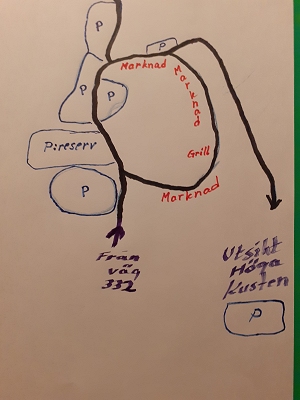 P
P
Marknad
P
P
Marknad
P:reserv
Grill
P
Marknad
Från
väg
332
Utsikt
Höga
Kusten
P